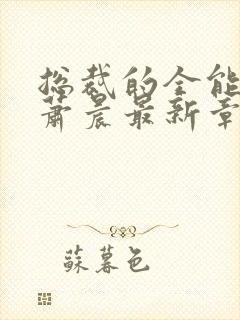 总裁的全能
萧晨最新章
蘇暮色